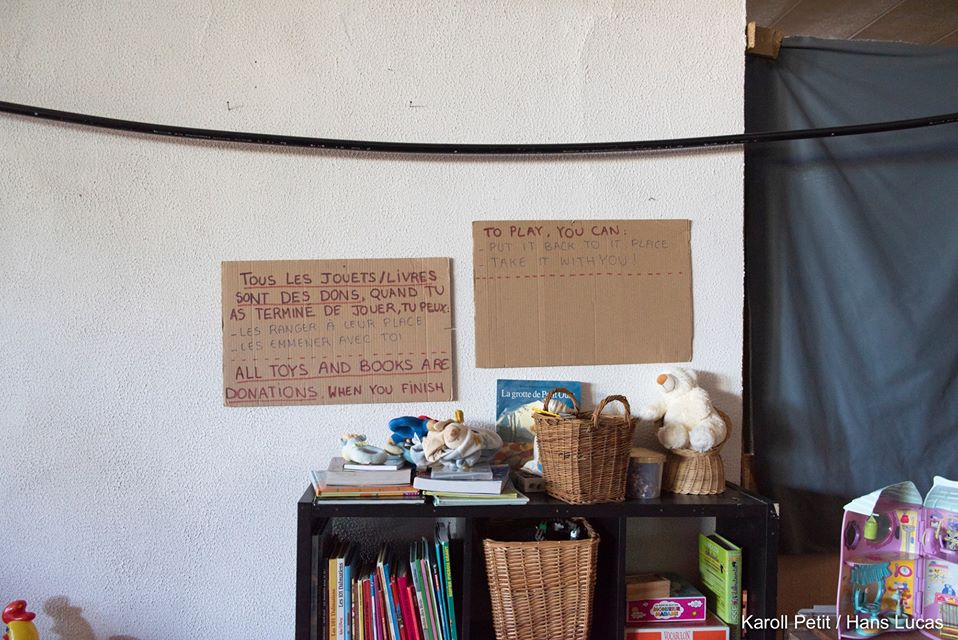 TOUS LES JOUETS/LIVRES
SONT DES DONS, QUAND TU
AS TERMINÉ DE JOUER, TU PEUX:
- LES RANGER À LEUR PLACE
- LES EMMENER AVEC TOI
ALL TOYS AND BOOKS ARE
DONATIONS. WHEN YOU FINISH
TO PLAY, YOU CAN:
- PUT IT BACK TO IT PLACE
- TAKE IT WITH YOU!
La grotte de Petit
MONSIEUR
MADAME
VOCABULON
Karoll Petit / Hans Lucas